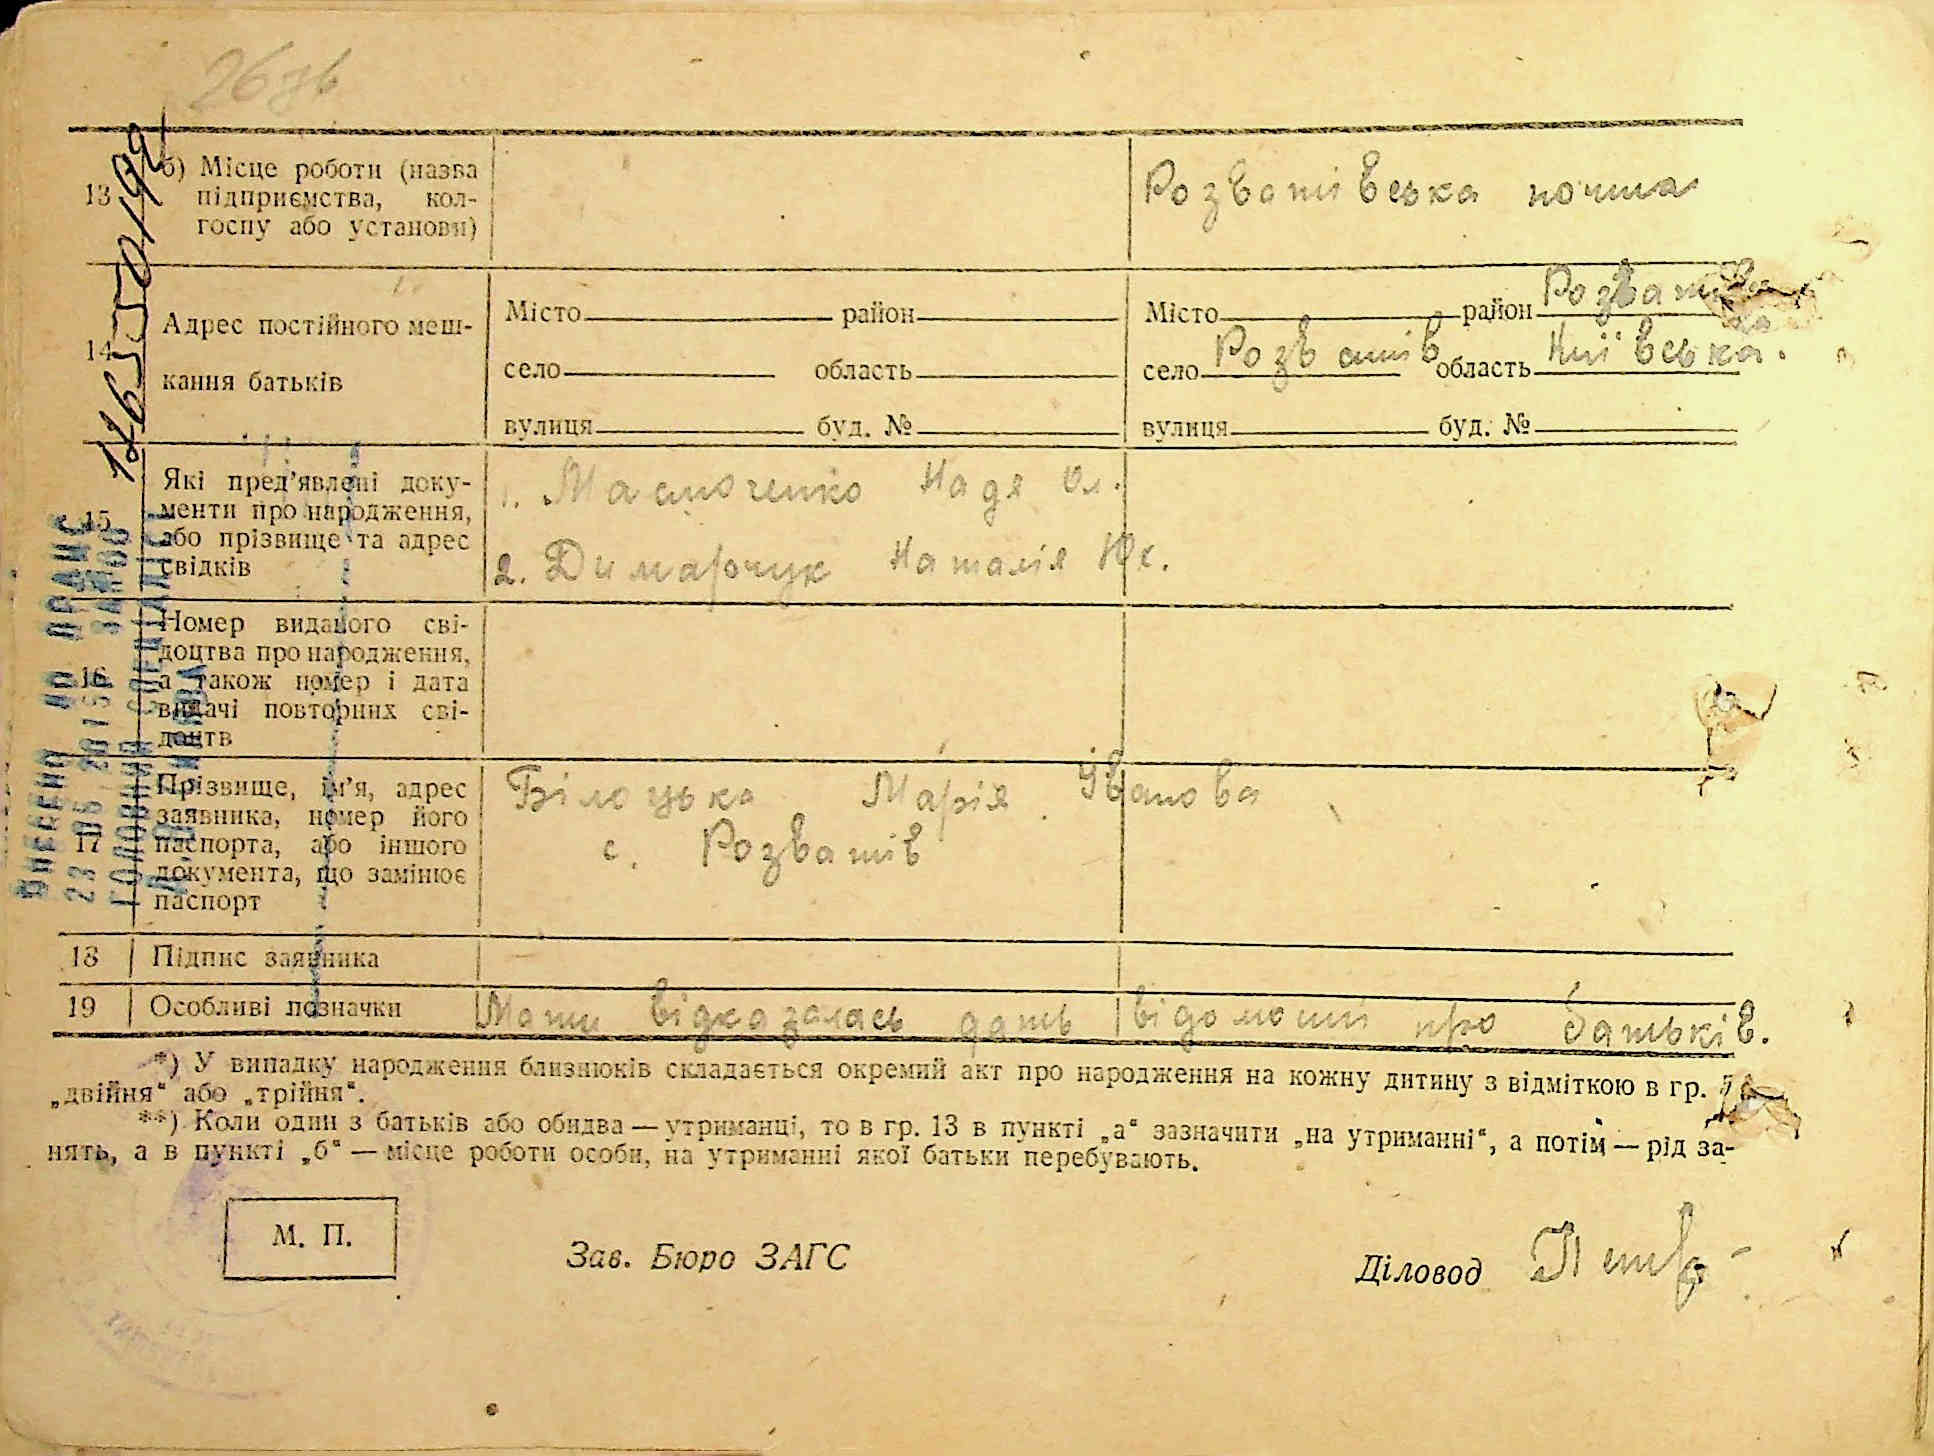 26 зв
б) Місце роботи (назва
13 підприємства, кол-
госпу або установи)
Розватівська почта
14 Адрес постійного меш-
кання батьків
Місто район
село область
вулиця буд. №
Місто район Розватівс
ка
село Розватів область Київська.
вулиця буд. №
15 Які пред'явлені доку-
менти про народження,
або прізвище та адрес
свідків
1. Надя Ол.
2. Димарчук Наталія Юх.
16 Номер виданого сві-
доцтва про народження,
а також номер і дата
видачі повторних сві-
доцтв
17 Прізвище, ім'я, адрес
заявника, номер його
паспорта, або іншого
документа, що замінює
паспорт
Білоцька Марія Іванова
с. Розватів
18 Підпис заявника
19 Особливі позначки Мати відказалась дать відомості про батьків.
*) У випадку народження близнюків складається окремий акт про народження на кожну дитину з відміткою в гр.
„двійня“ або „трійня“.
**) Коли один з батьків або обидва — утриманці, то в гр. 13 в пункті „а“ зазначити „на утриманні“, а потім — рід за-
нять, а в пункті „б“ — місце роботи особи, на утриманні якої батьки перебувають.
М. П.
Зав. Бюро ЗАГС
Діловод
ВНЕСЕНО ДО ДРАЦС
23 06 2015р
ГОЛОВНИЙ СПЕЦІАЛІСТ